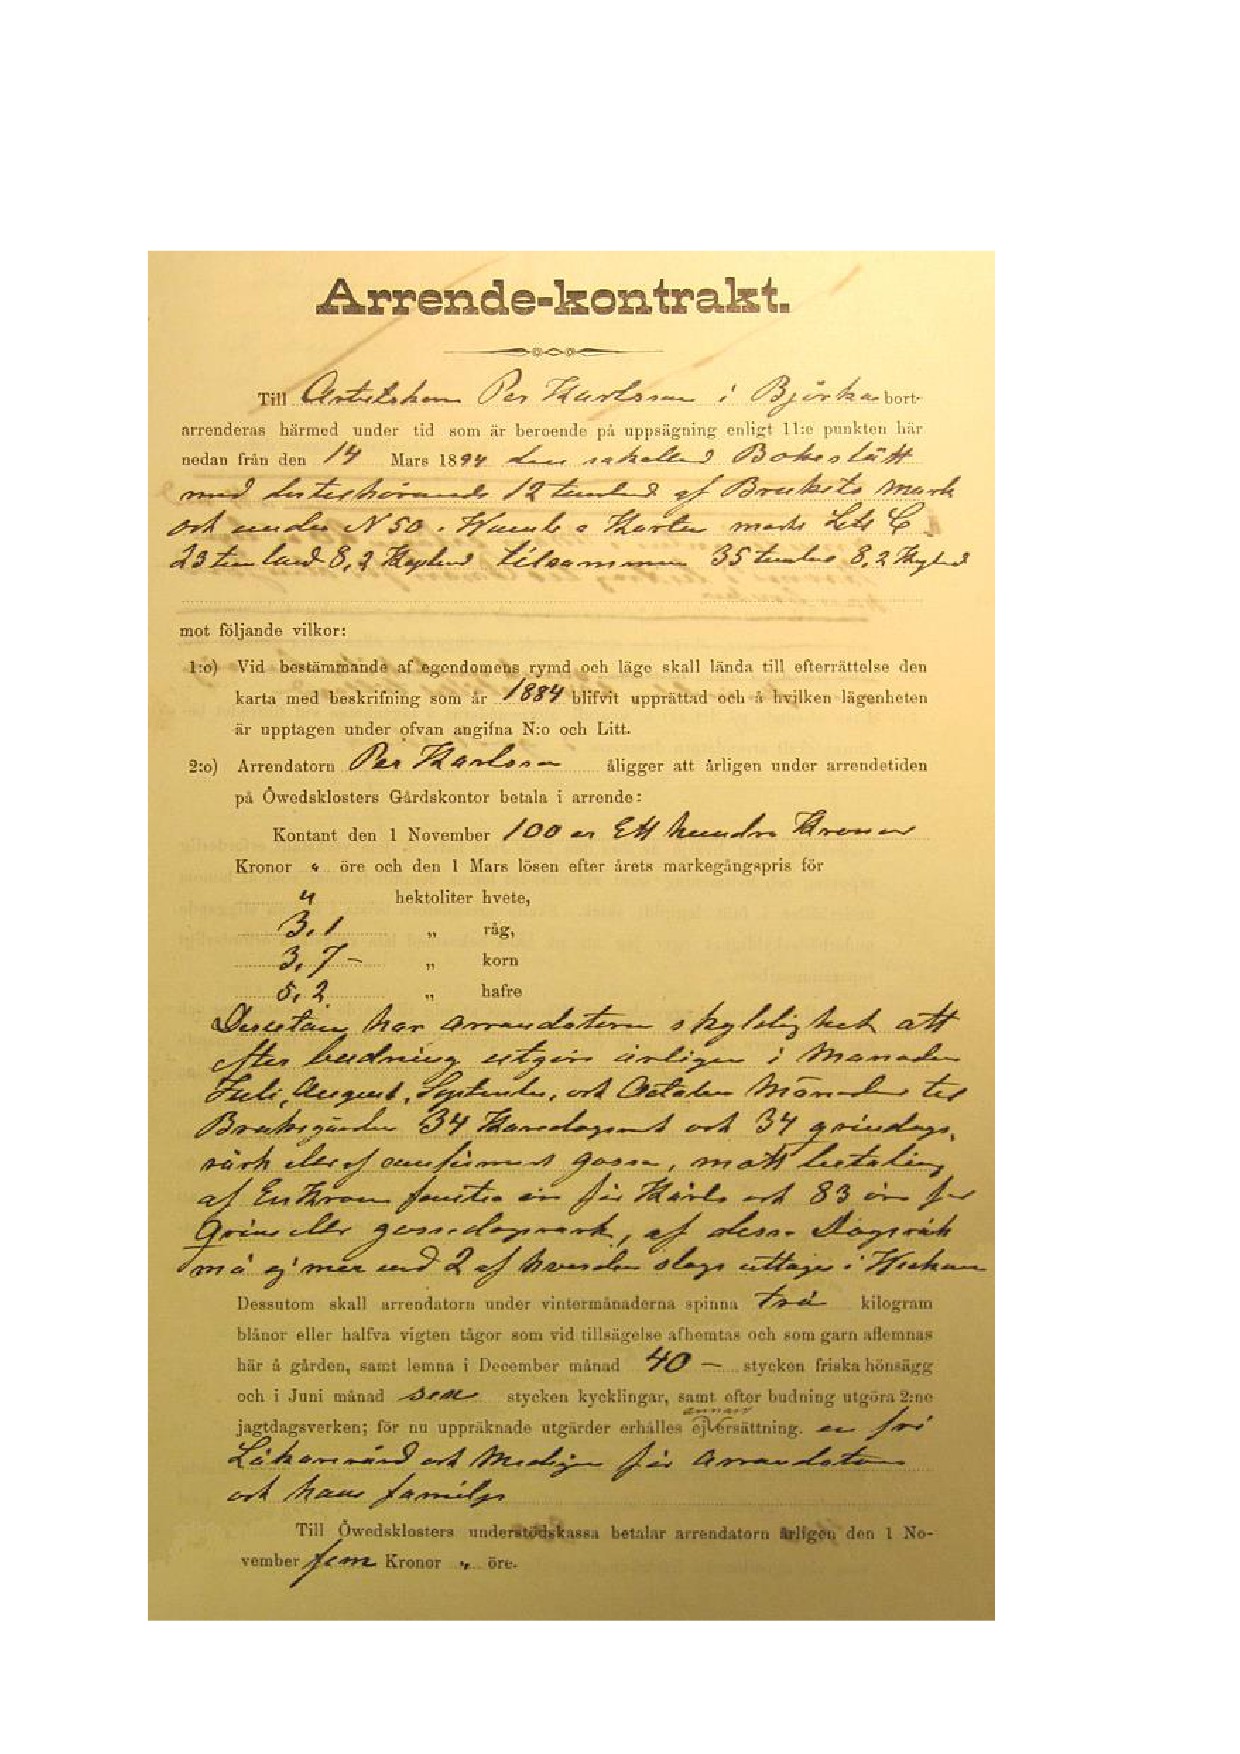 Arrende-kontrakt.
Till Per Karlsson i Björka bort-
arrenderas härmed under tid som är beroende på uppsägning enligt 11:e punkten här
nedan från den 14 Mars 1894 den så kallad Bokeslätt
med 12 tunland af Brukets Mark
och under N 50 Karta
23 tunland 8,2 Kapland tilsamman 35 tunland 8,2 Kapland
mot följande vilkor:
1:o) Vid bestämmande af egendomens rymd och läge skall lända till efterrättelse den
karta med beskrifning som år 1884 blifvit upprättad och å hvilken lägenheten
är upptagen under ofvan angifna N:o och Litt.
2:o) Arrendatorn Per Karlsson åligger att årligen under arrendetiden
på Öwedsklosters Gårdskontor betala i arrende:
Kontant den 1 November 100 Ett hundra Kronor
Kronor " öre och den 1 Mars lösen efter årets markegångspris för
" hektoliter hvete,
3,1 " råg,
3,7 – " korn
5,2 " hafre
har arrendatorn skyldighet att
efter budning utgöra årligen i Månaden
Juli, August, September, och October Månader
34 och 34
gosse, mott betaling
af En Krona för Karls och 83 öre för
eller gossedagsverk, af dessa
må ej mer end 2 af hvardera slags uttages i Veckan
Dessutom skall arrendatorn under vintermånaderna spinna två kilogram
blånor eller halfva vigten tågor som vid tillsägelse afhemtas och som garn aflemnas
här å gården, samt lemna i December månad 40 – stycken friska hönsägg
och i Juni månad sex stycken kycklingar, samt efter budning utgöra 2:ne
jagtdagsverken; för nu uppräknade utgärder erhålles ej annan ersättning. en fri
Läkarevård och Medizin för Arrendatorn
och hans familje
Till Öwedsklosters understödskassa betalar arrendatorn årligen den 1 No-
vember fem Kronor " öre.